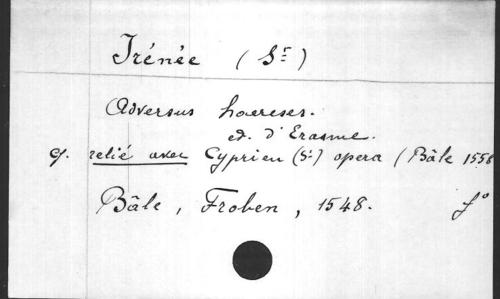 Irénée (St)
Adversus haereses.
ed. d'Erasme.
cf. relié avec Cyprien (St) opera (Bâle 1558
Bâle, Froben, 1548. fo